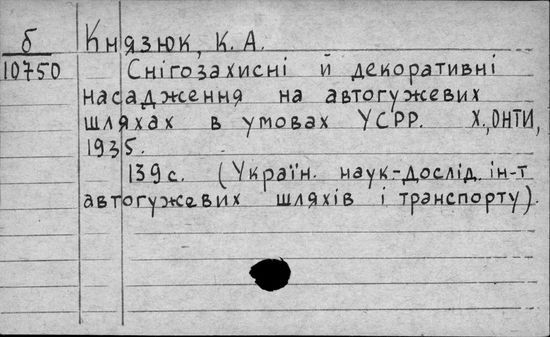 б Князюк, К. А.
10750 Снігозахисні й декоративні
насадження на автогужевих
шляхах в умовах УСРР. Х., ОНТИ,
1935.
139 с. (Україн. наук.-дослід. ін-т
автогужевих шляхів і транспорту).